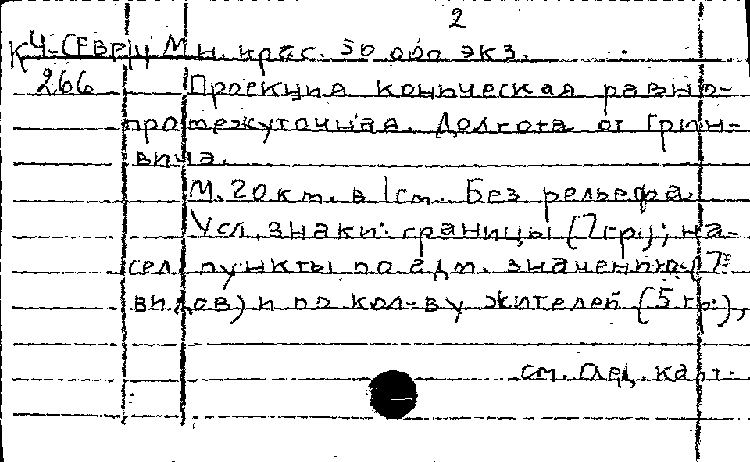 2
К4-СЕВЕР Мн. крас. 50 000 экз.
266 Проекция коническая равно-
промежуточная. Долгота от Грин-
вича.
М. 20 км. в 1 см. Без рельефа
Усл. знаки: границы (7 гр.); на-
сел. пункты по адм. значению (7
видов) и по кол-ву жителей (5 гр.),
см. след. карт.